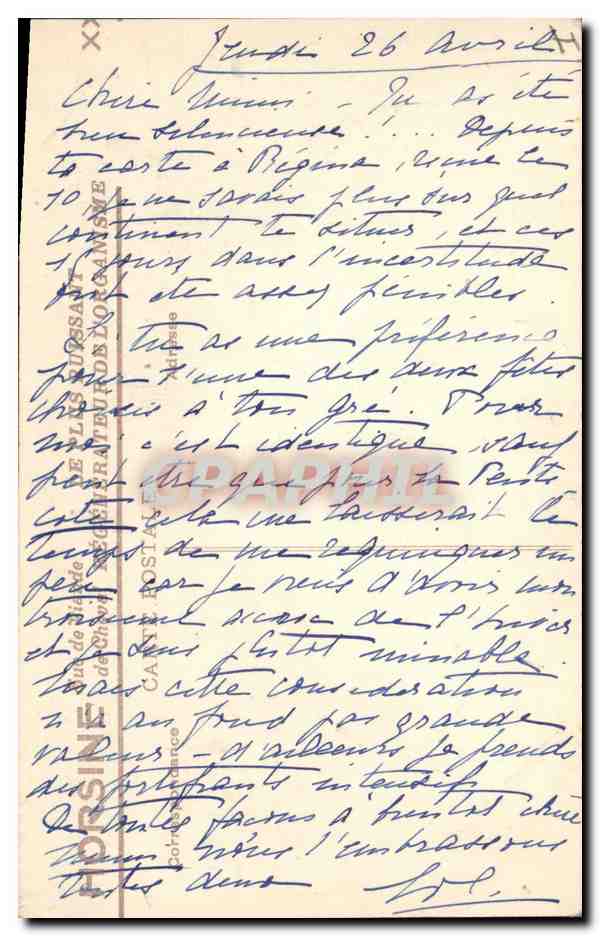 Jeudi 26 Avril
Chère Mimi - Tu as été
bien silencieuse !... Depuis
ta carte à Régina, reçue le
10 je ne savais plus sur quel
continent te situer, et ces
15 jours dans l'incertitude
ont été assez pénibles.
Si tu as une préférence
pour l'une des deux fêtes
choisis à ton gré. Pour
moi c'est identique, sauf
peut être que pour la Pente
côte cela me laisserait le
temps de me requinquer un
peu car je viens d'avoir mon
troisième accroc de l'hiver
et je suis plutôt minable.
Mais cette considération
n'a au fond pas grande
valeur - d'ailleurs je prends
des fortifiants intensifs
De toutes façons à bientôt chère
Mimi nous t'embrassons
toutes deux
HORSINE
Suc de Viande de Cheval
LE PLUS PUISSANT
RÉGÉNÉRATEUR DE L'ORGANISME
CARTE POSTALE
Correspondance
Adresse
CPAPHIL